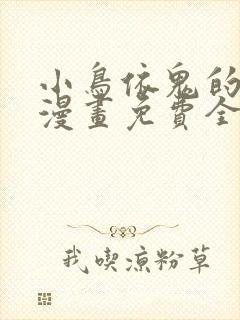 小鳥依鬼的
漫畫免費全
我喫涼粉草